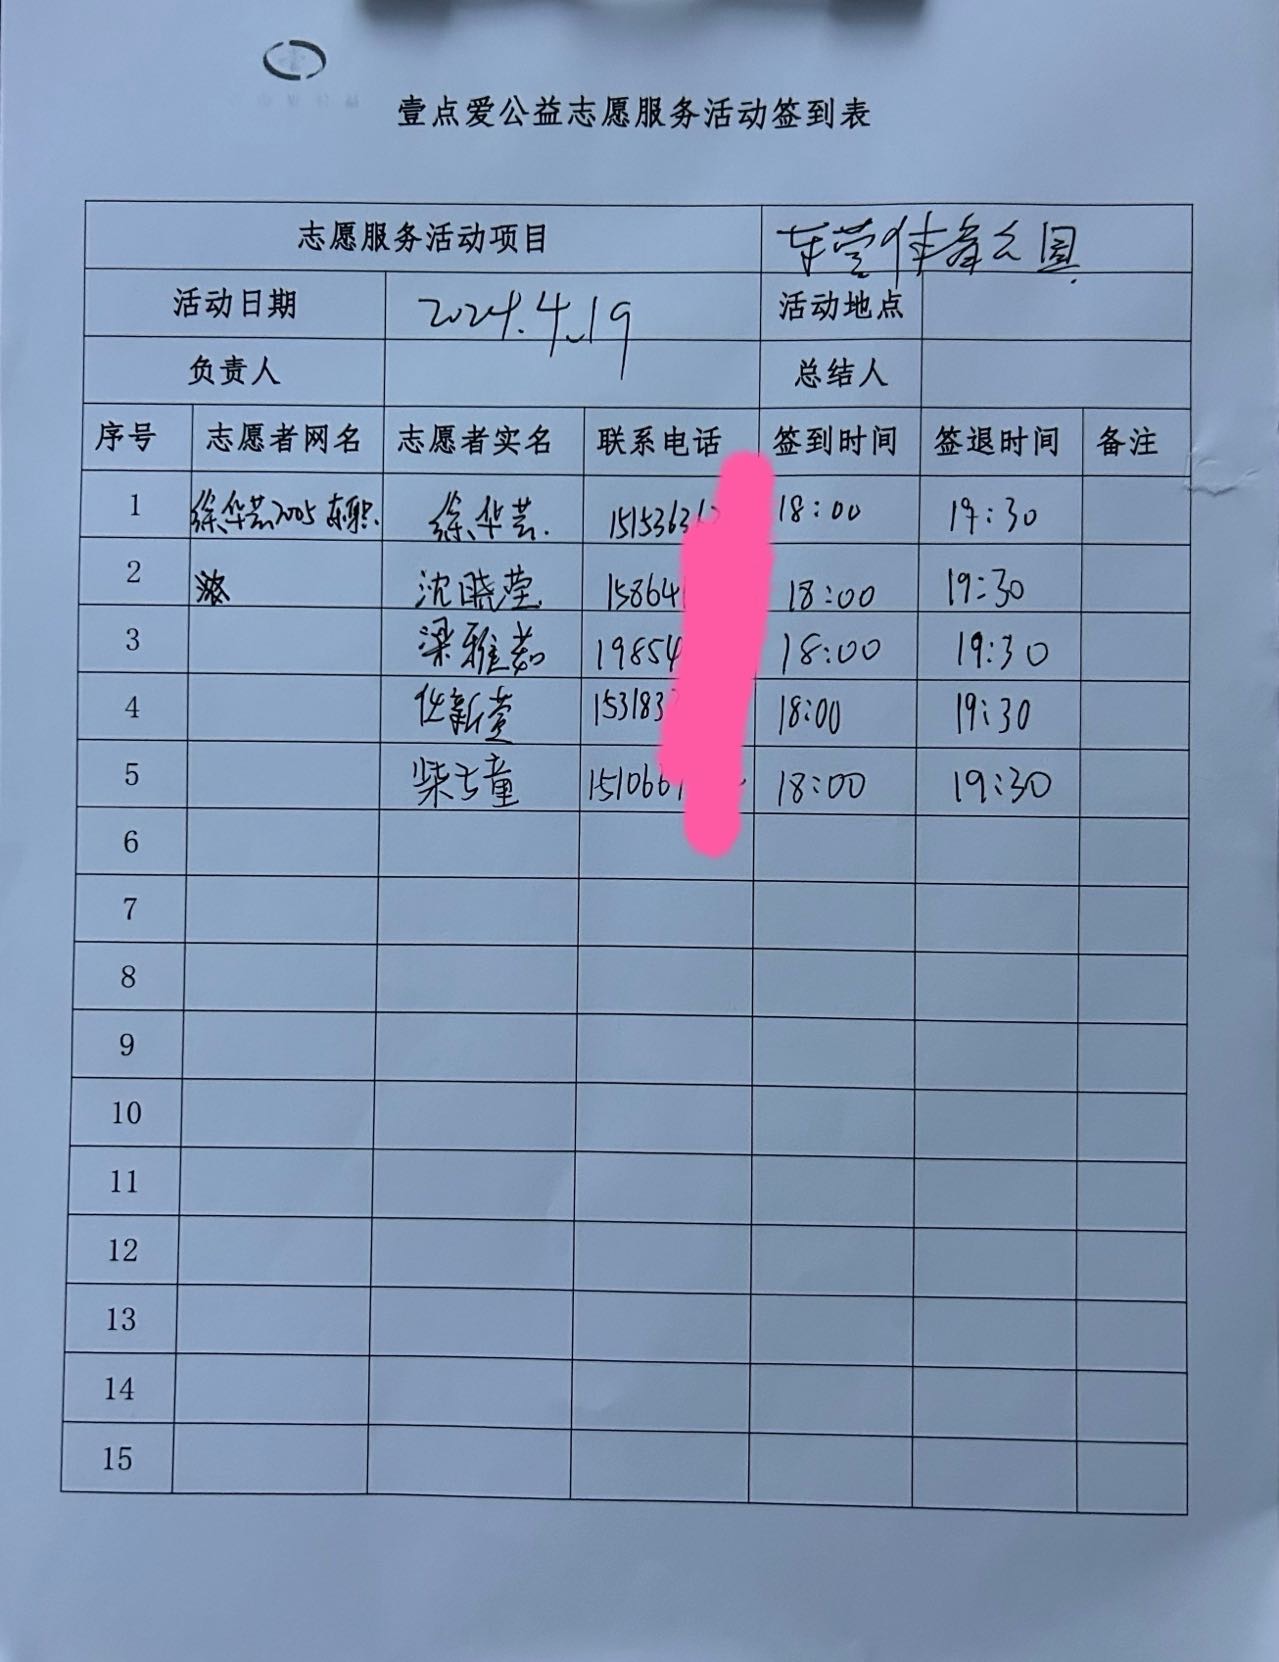 壹点爱公益志愿服务活动签到表
志愿服务活动项目 东营体育公园
活动日期 2024.4.19 活动地点
负责人 总结人
序号 志愿者网名 志愿者实名 联系电话 签到时间 签退时间 备注
1 徐华芸2005东职. 徐华芸. 1515363 18:00 19:30
2 沈晓莹 15864 18:00 19:30
3 梁雅茹 19854 18:00 19:30
4 任新萱 153183 18:00 19:30
5 柴云童 151066 18:00 19:30
6
7
8
9
10
11
12
13
14
15